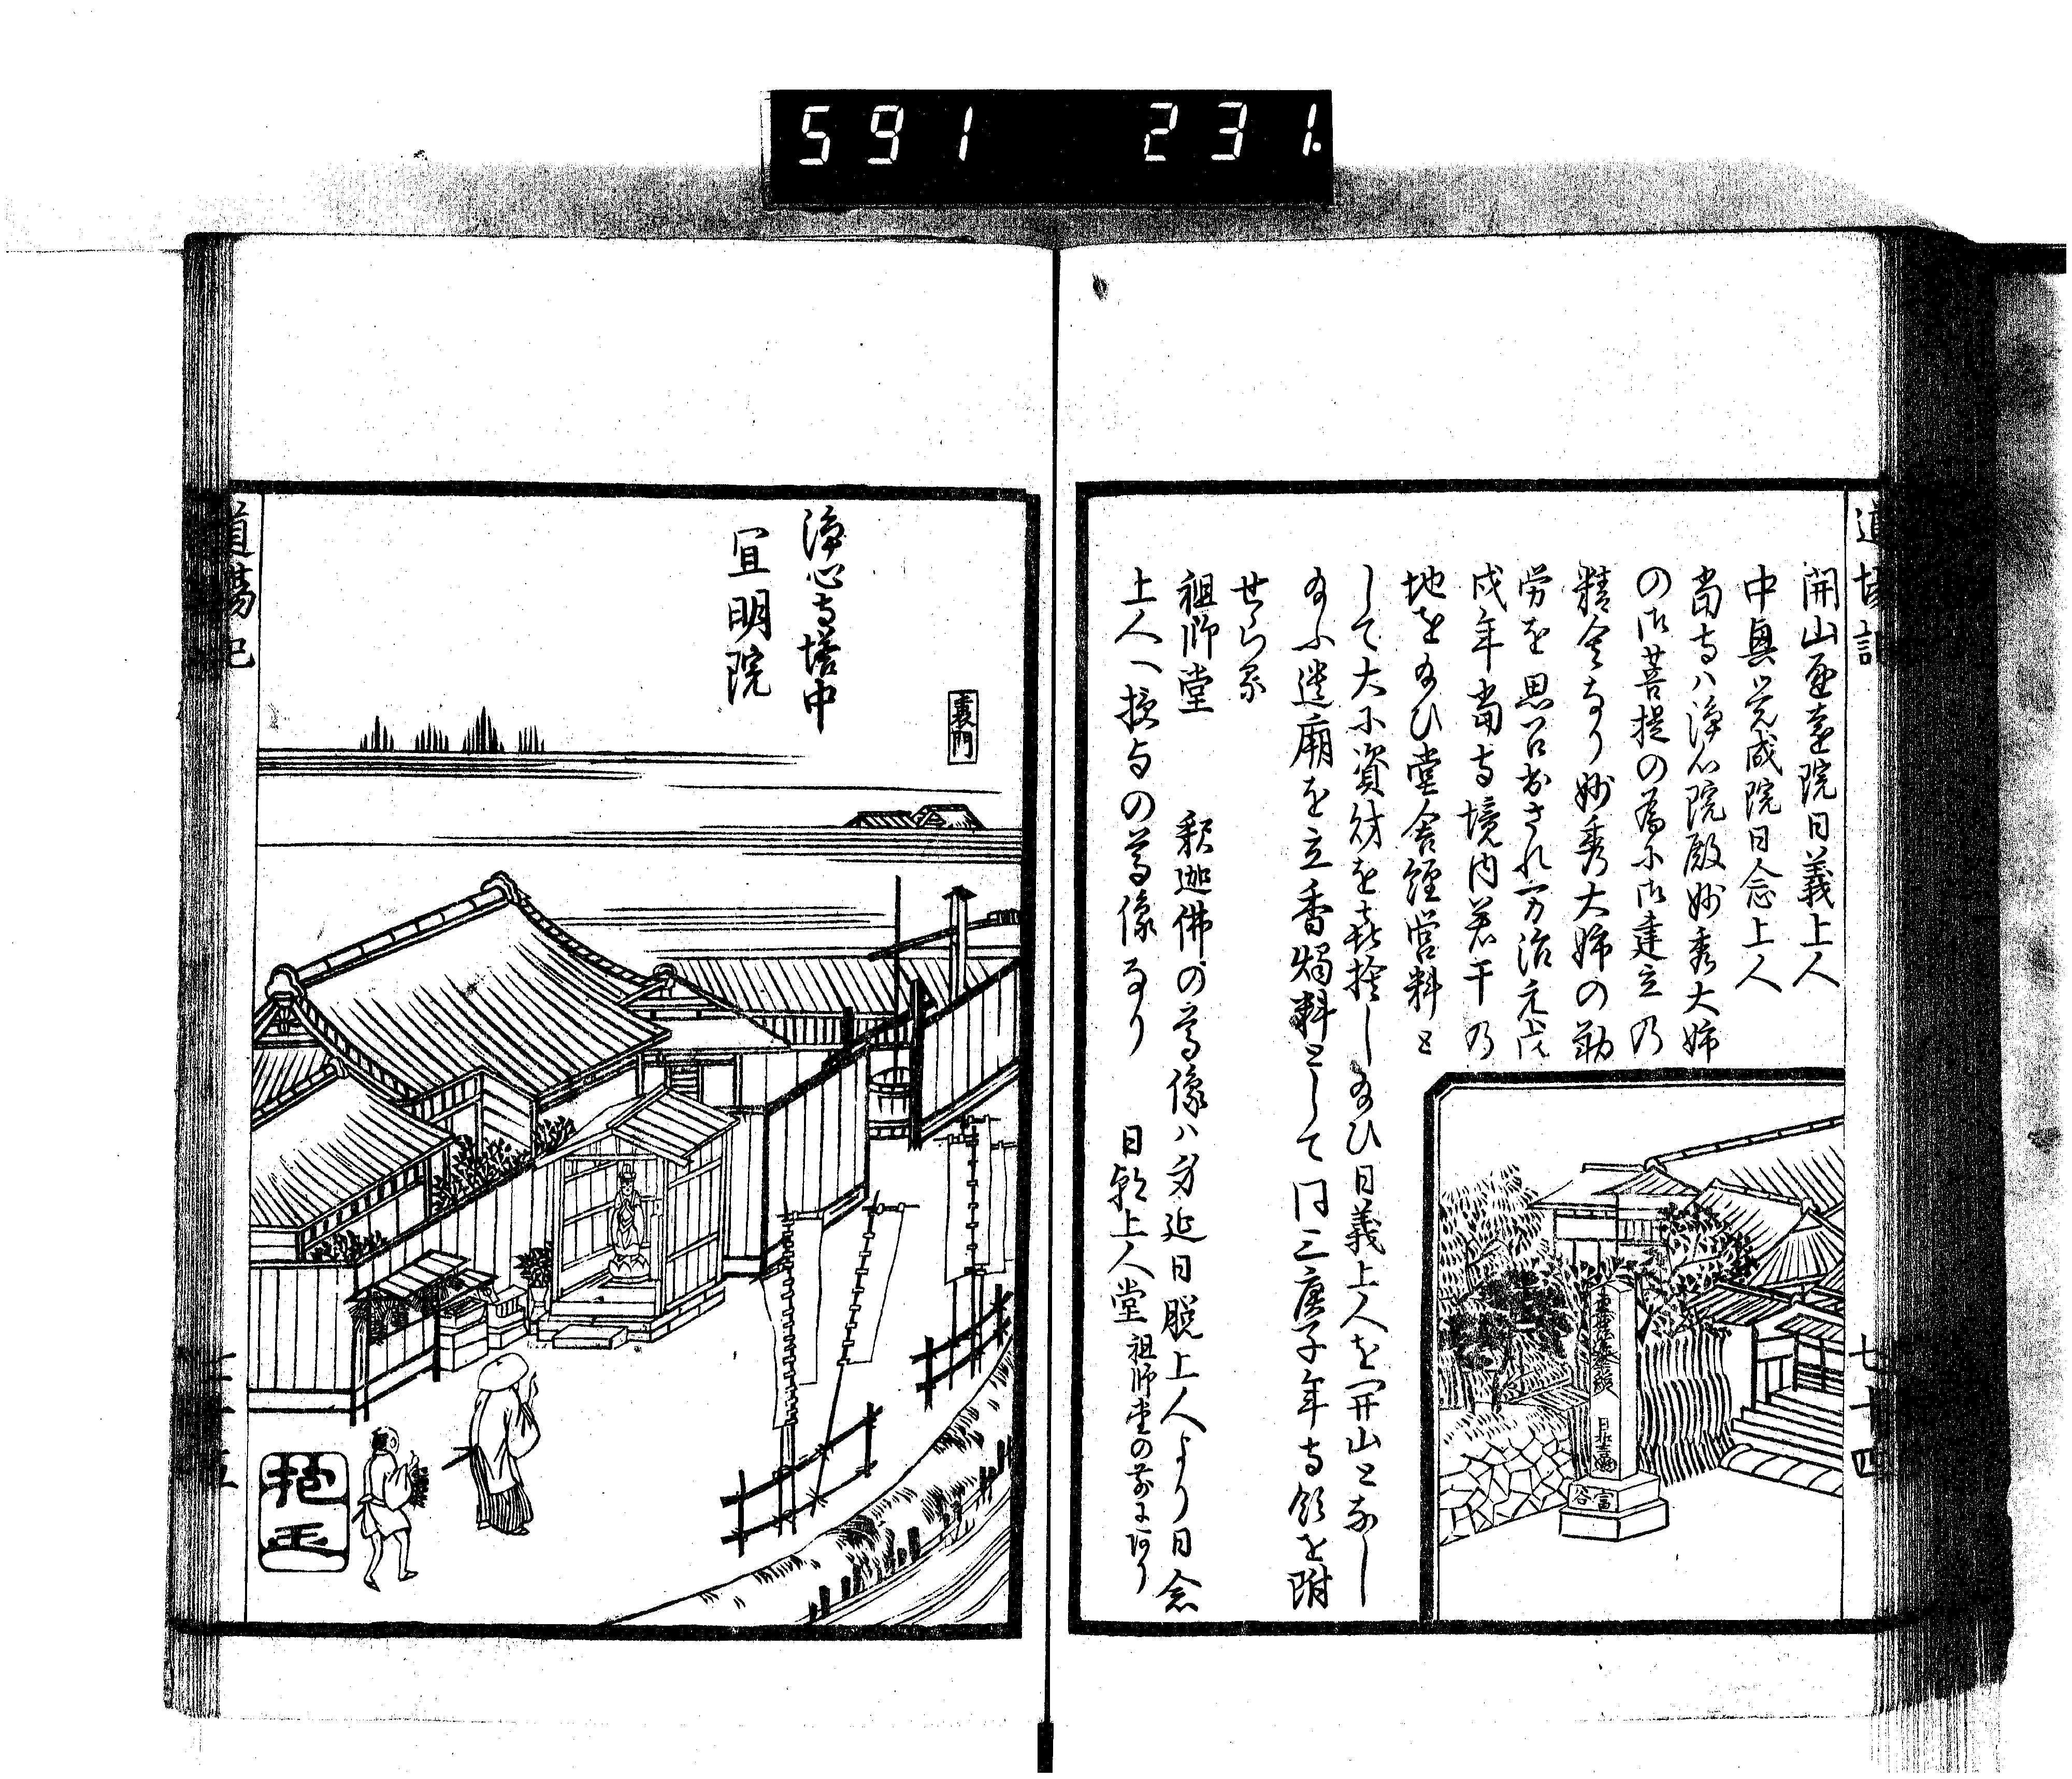 591 231.
道場記
開山通遠院日義上人
中興覚成院日念上人
当寺ハ浄心院殿妙秀大姉
の御菩提の為に御建立乃
精舎なり妙秀大姉の勤
労を思召出され万治元戊
戌年当寺境内若干乃
地を給ひ堂舎経営料と
して大に資財を喜捨し給ひ日義上人を開山となし
給ふ遺廟を立香燭料として同三庚子年寺領を附
せらる
祖師堂 釈迦佛の尊像ハ身延日脱上人より日念
上人へ授与の尊像なり 日朝上人堂 祖師堂の前にあり
七十四
日
富
谷
裏門
浄心寺塔中
宜明院
抱
玉
道場記